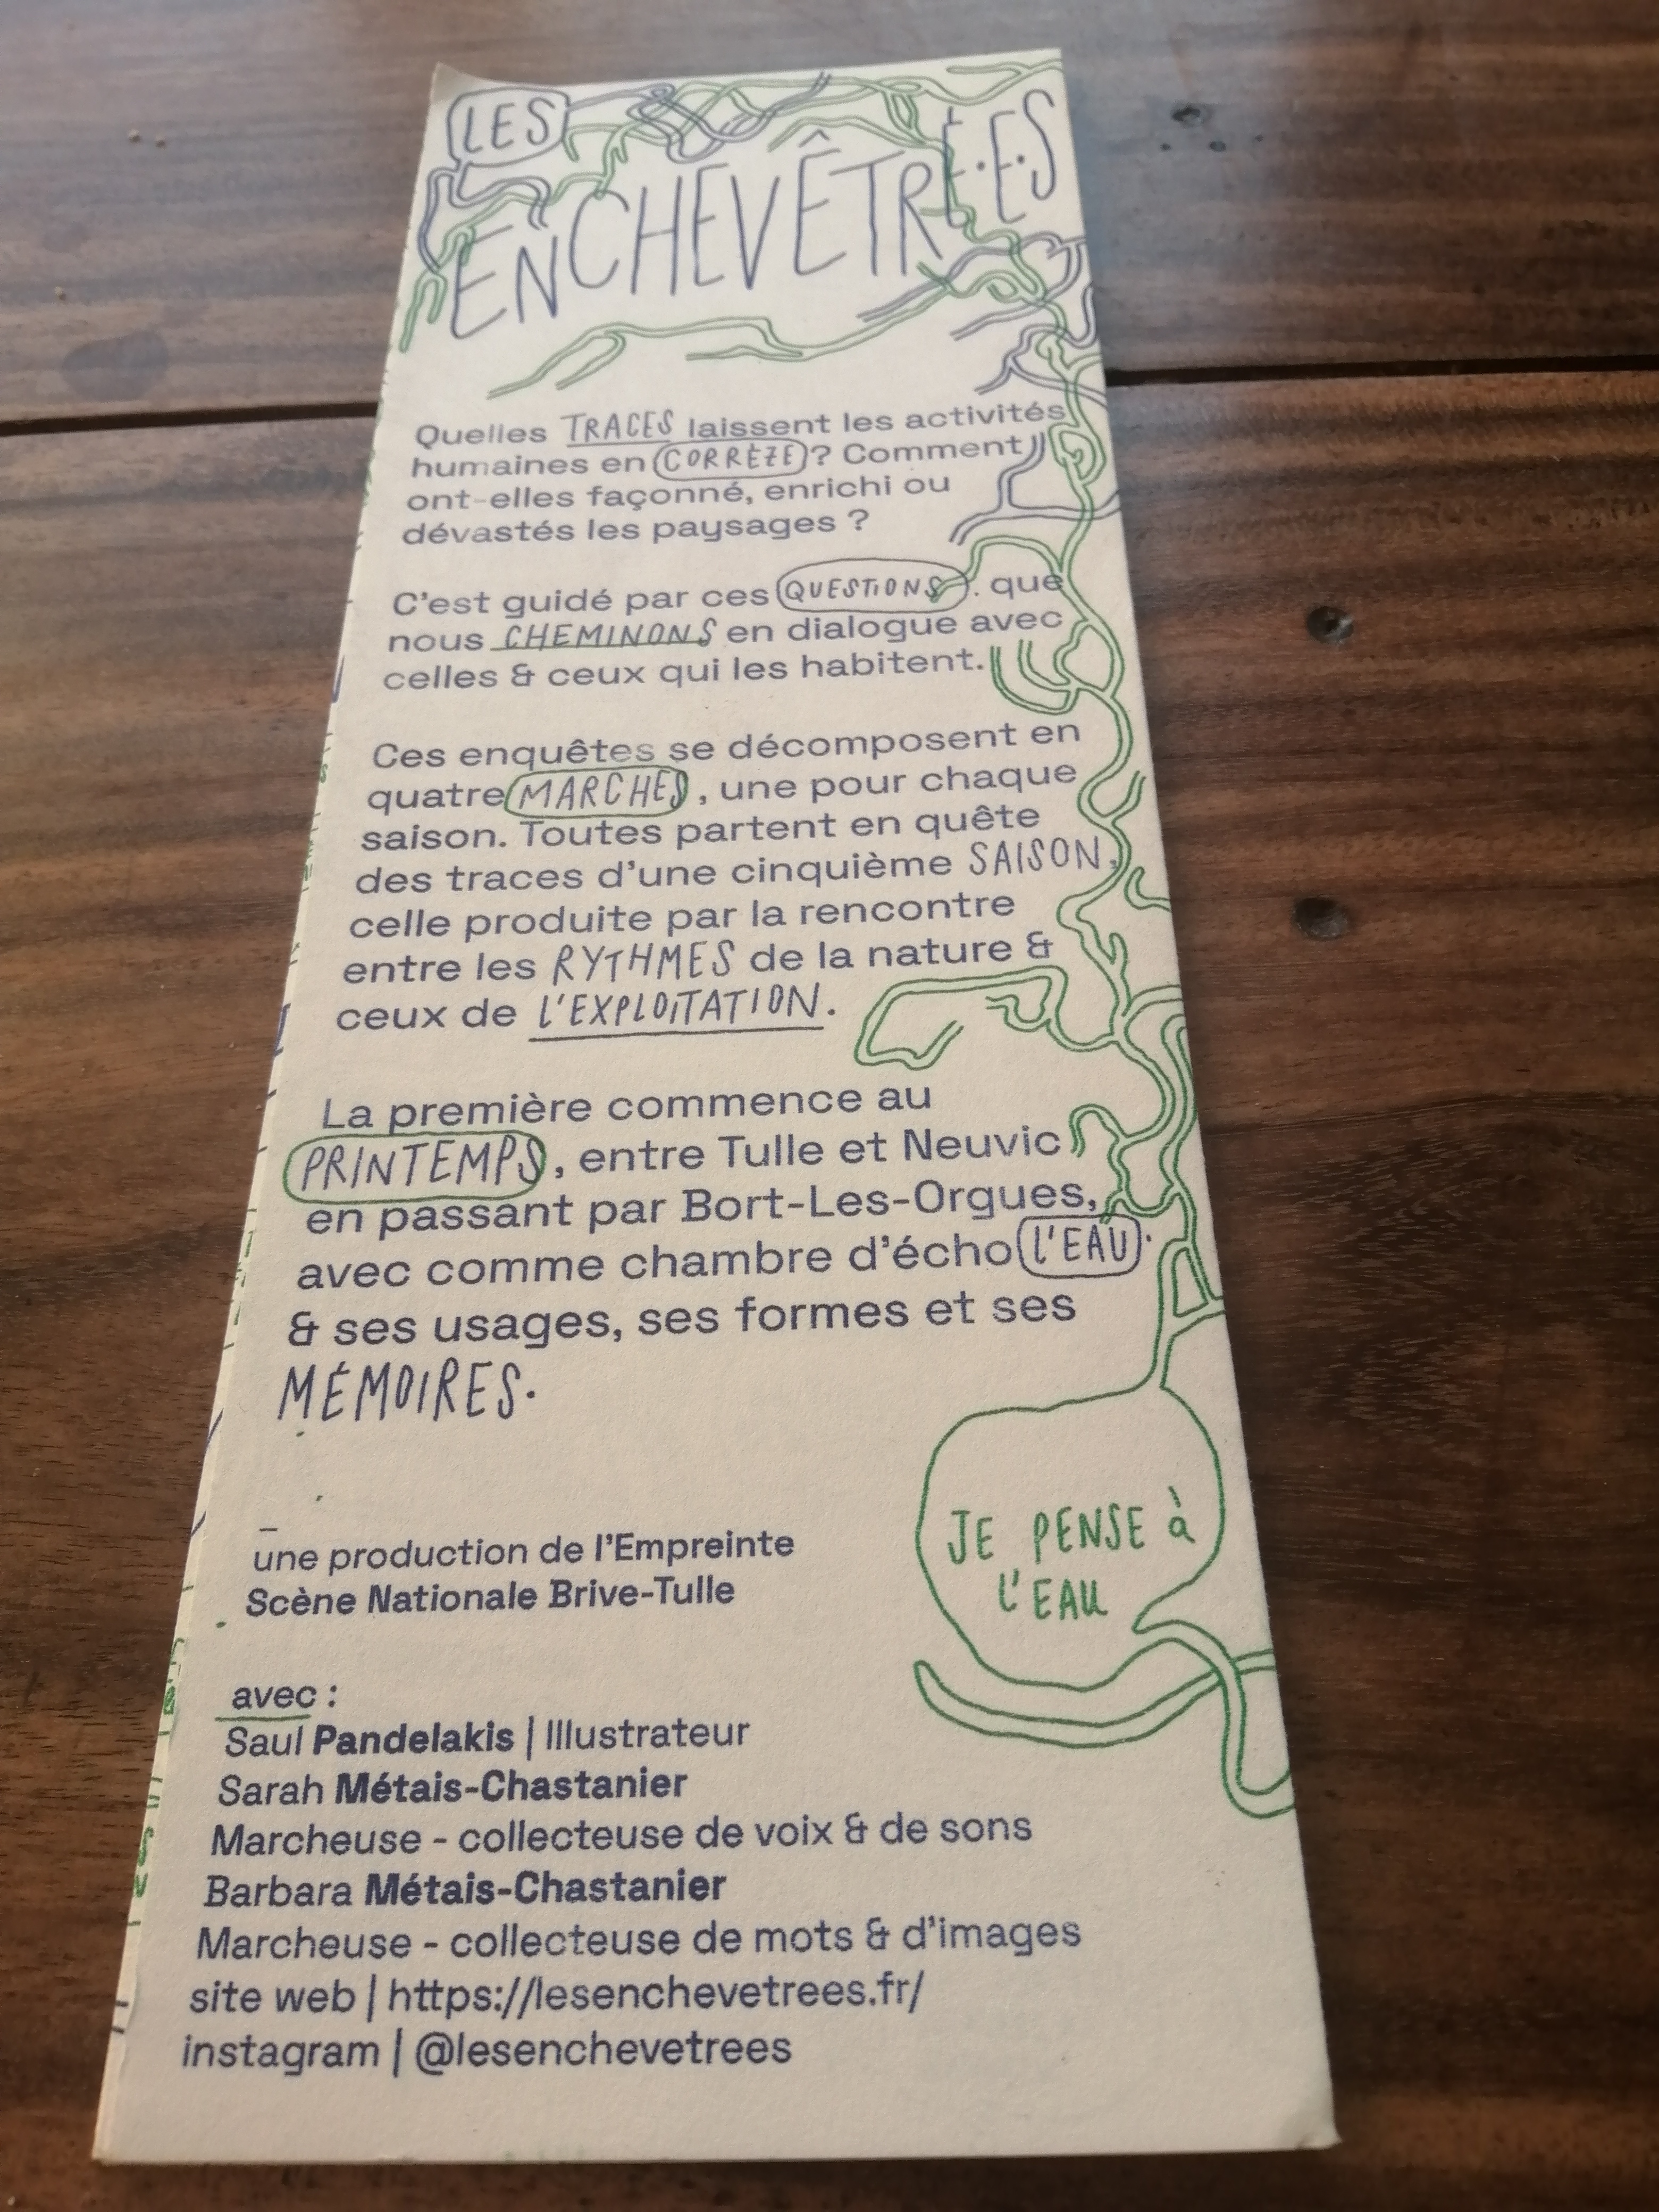 LES
ENCHEVÊTRÉ·E·S
Quelles TRACES laissent les activités
humaines en CORRÈZE ? Comment
ont-elles façonné, enrichi ou
dévastés les paysages ?
C'est guidé par ces QUESTIONS . que
nous CHEMINONS en dialogue avec
celles & ceux qui les habitent.
Ces enquêtes se décomposent en
quatre MARCHES , une pour chaque
saison. Toutes partent en quête
des traces d'une cinquième SAISON,
celle produite par la rencontre
entre les RYTHMES de la nature &
ceux de L'EXPLOITATION.
La première commence au
PRINTEMPS , entre Tulle et Neuvic
en passant par Bort-Les-Orgues,
avec comme chambre d'écho L'EAU
& ses usages, ses formes et ses
MÉMOIRES.
JE PENSE à
L'EAU
–
une production de l'Empreinte
Scène Nationale Brive-Tulle
avec :
Saul Pandelakis | Illustrateur
Sarah Métais-Chastanier
Marcheuse - collecteuse de voix & de sons
Barbara Métais-Chastanier
Marcheuse - collecteuse de mots & d'images
site web | https://lesenchevetrees.fr/
instagram | @lesenchevetrees